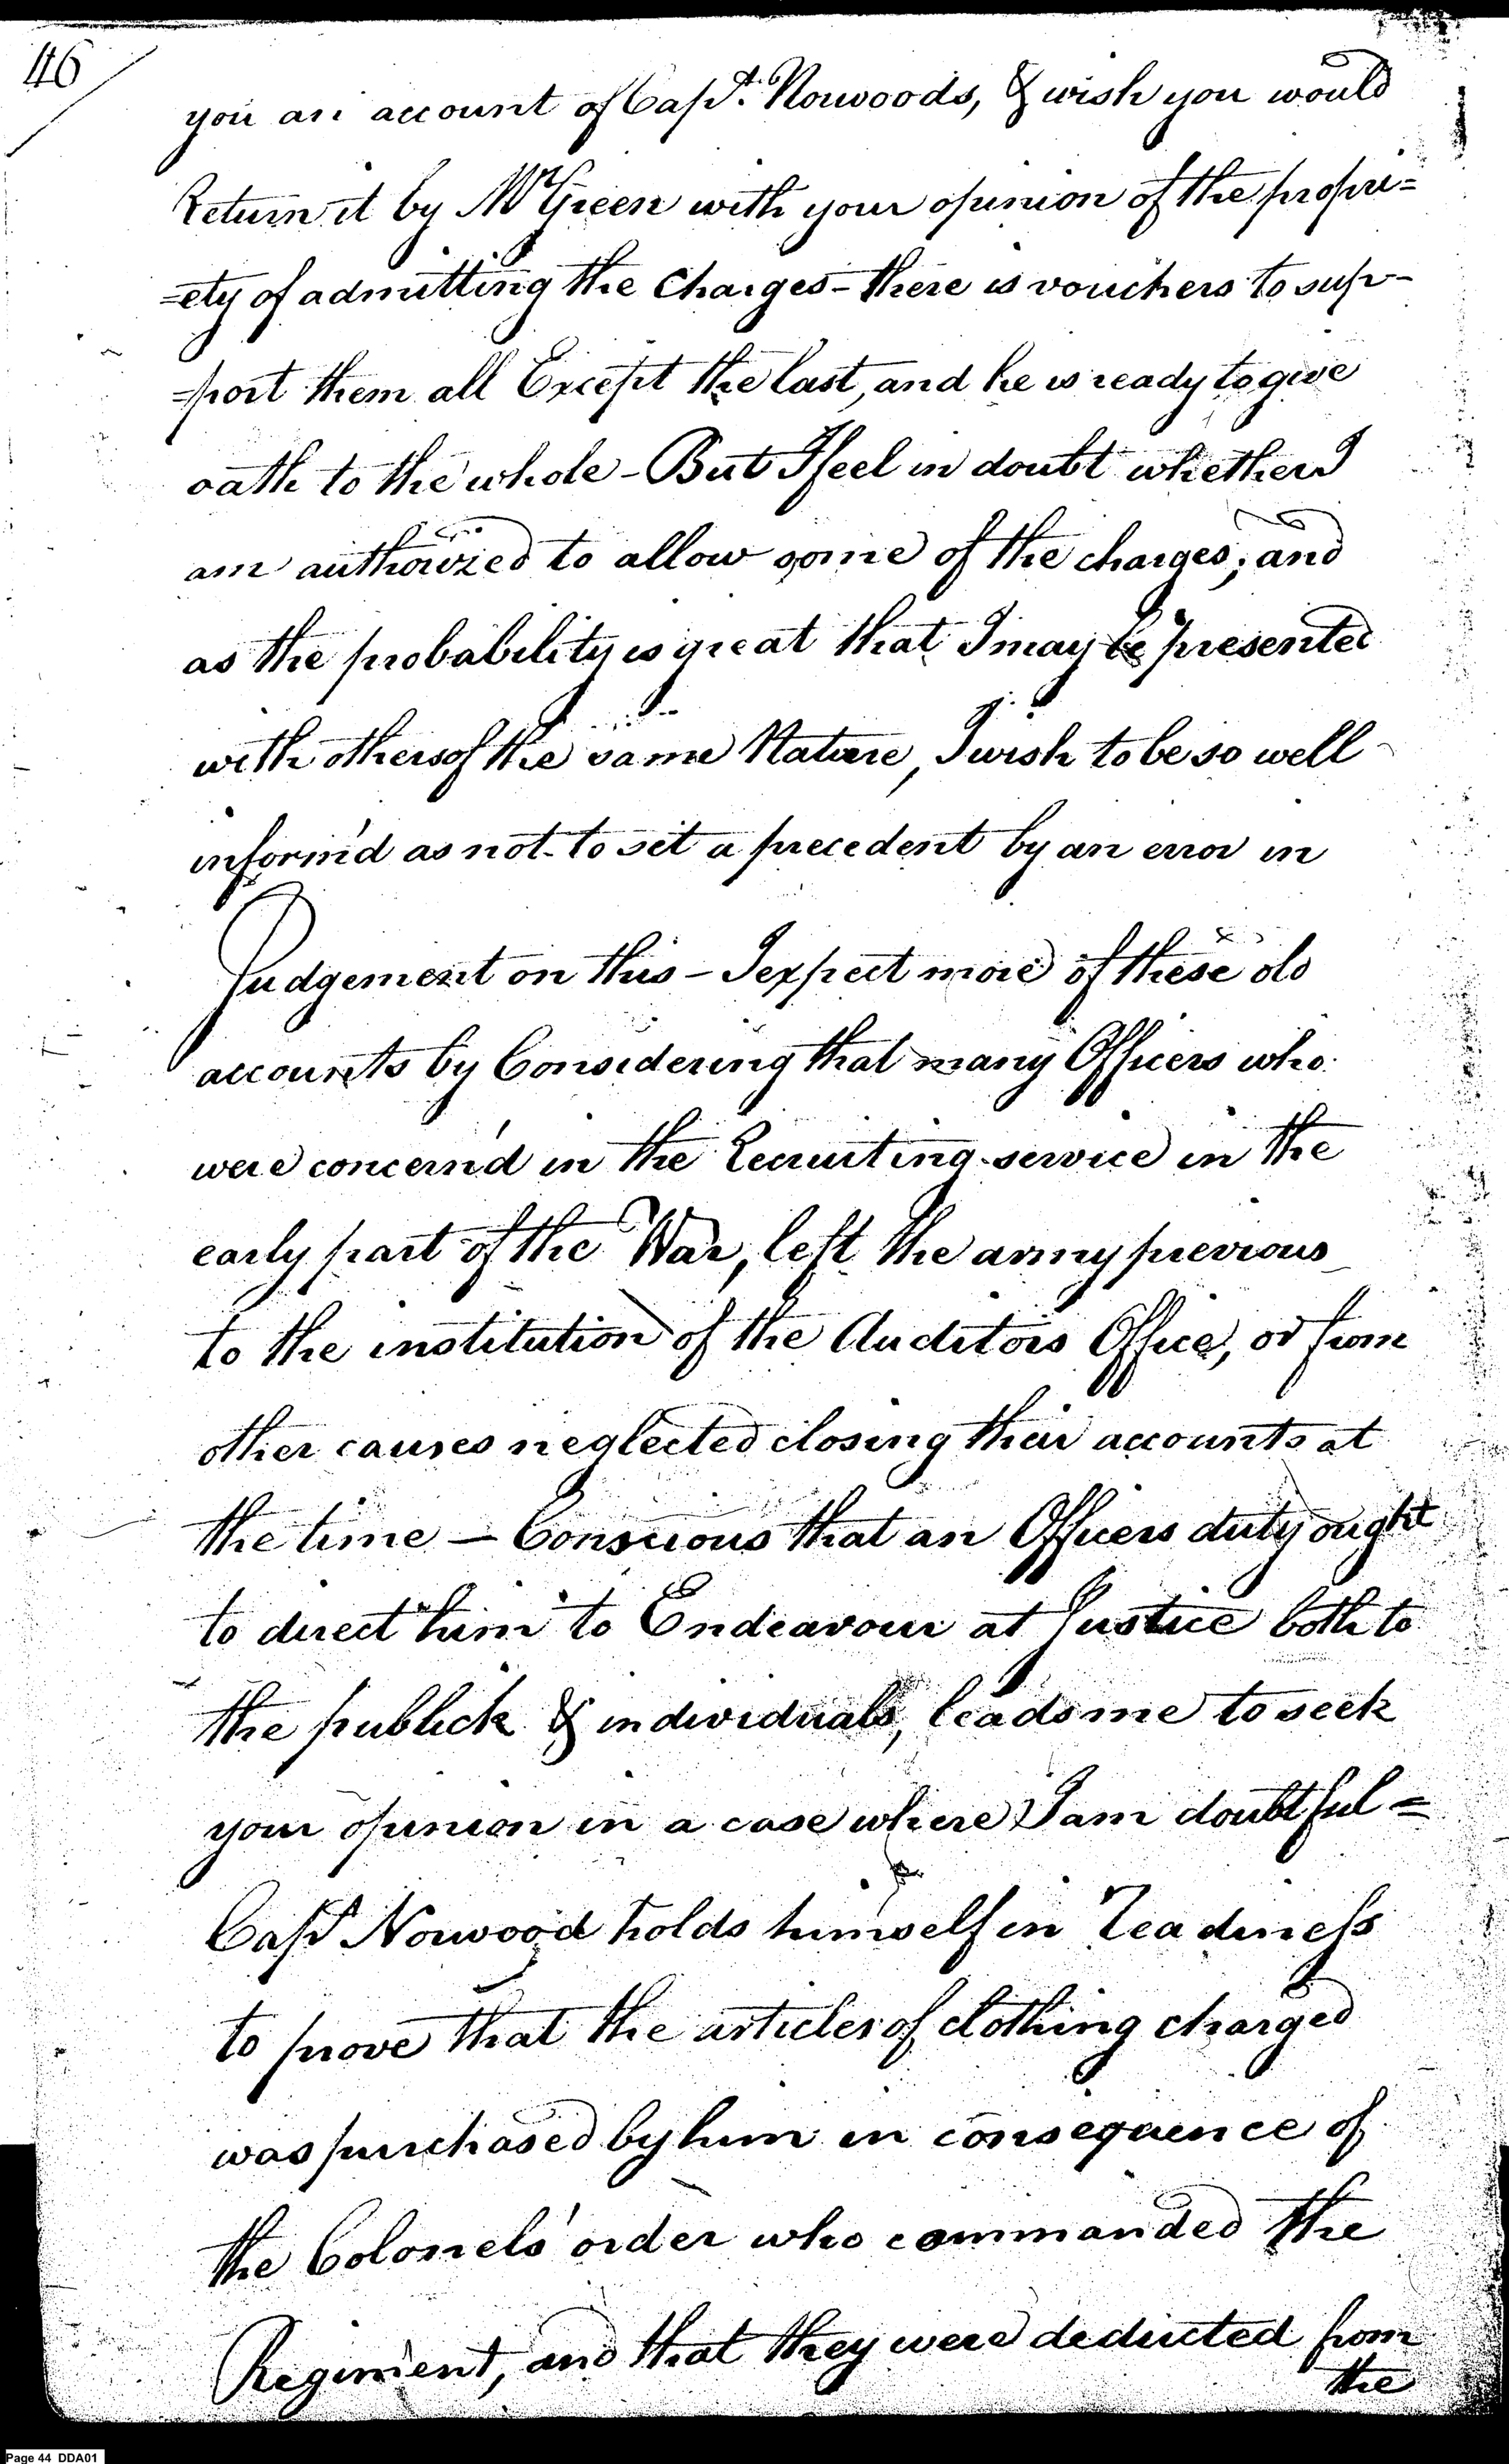 46
you an account of Capt. Norwoods, & wish you would
Return it by Mr Green with your opinion of the propri=
=ety of admitting the Charges - there is vouchers to sup-
=port them all Except the last, and he is ready to give
oath to the whole - But I feel in doubt whether I
am authorized to allow some of the charges; and
as the probability is great that I may be presented
with others of the same Nature, I wish to be so well
inform'd as not to set a precedent by an error in
Judgement on this - I expect more of these old
accounts by Considering that many Officers who
were concern'd in the Recruiting service in the
early part of the War, left the army previous
to the institution of the Auditors Office, or from
other causes neglected closing their accounts at
the time - Conscious that an Officers duty ought
to direct him to Endeavour at Justice both to
the publick & individuals, leads me to seek
your opinion in a case where I am doubtful =
Capt Norwood holds himself in readiness
to prove that the articles of clothing charged
was purchased by him in consequence of
the Colonels' order who commanded the
Regiment, and that they were deducted from
the
Page 44 DDA01